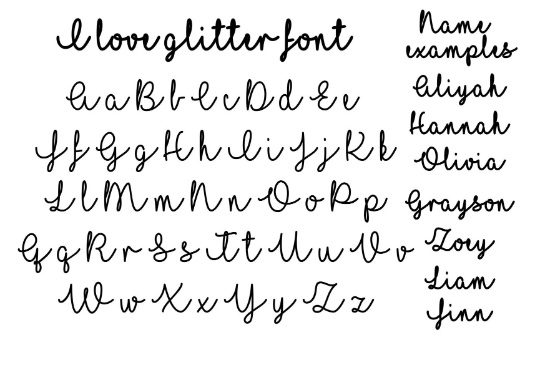 I love glitter font
A a B b C c D d E e
F f G g H h I i J j K k
L l M m N n O o P p
Q q R r S s T t U u V v
W w X x Y y Z z
Name
examples
Aliyah
Hannah
Olivia
Grayson
Zoey
Liam
Finn